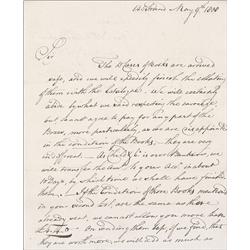 Strand May 9th 1800
Sir
The Cases of Books are arrived
safe, and we will speedily finish the collating
of them with the Catalogue. We will certainly
abide by what we said respecting the carriage,
but cannot agree to pay for any part of the
Boxes, more particularly, as we are disappointed
in the condition of the Books; they are very
indifferent. — As is over
we will transfer the to your in about
10 Days, by which time we shall have finished
them. If the Condition of those Books mentioned
in your second List are the same as those
already sent, we cannot allow you more than
On sending them up, if we find that
they are worth more, we will add as much as